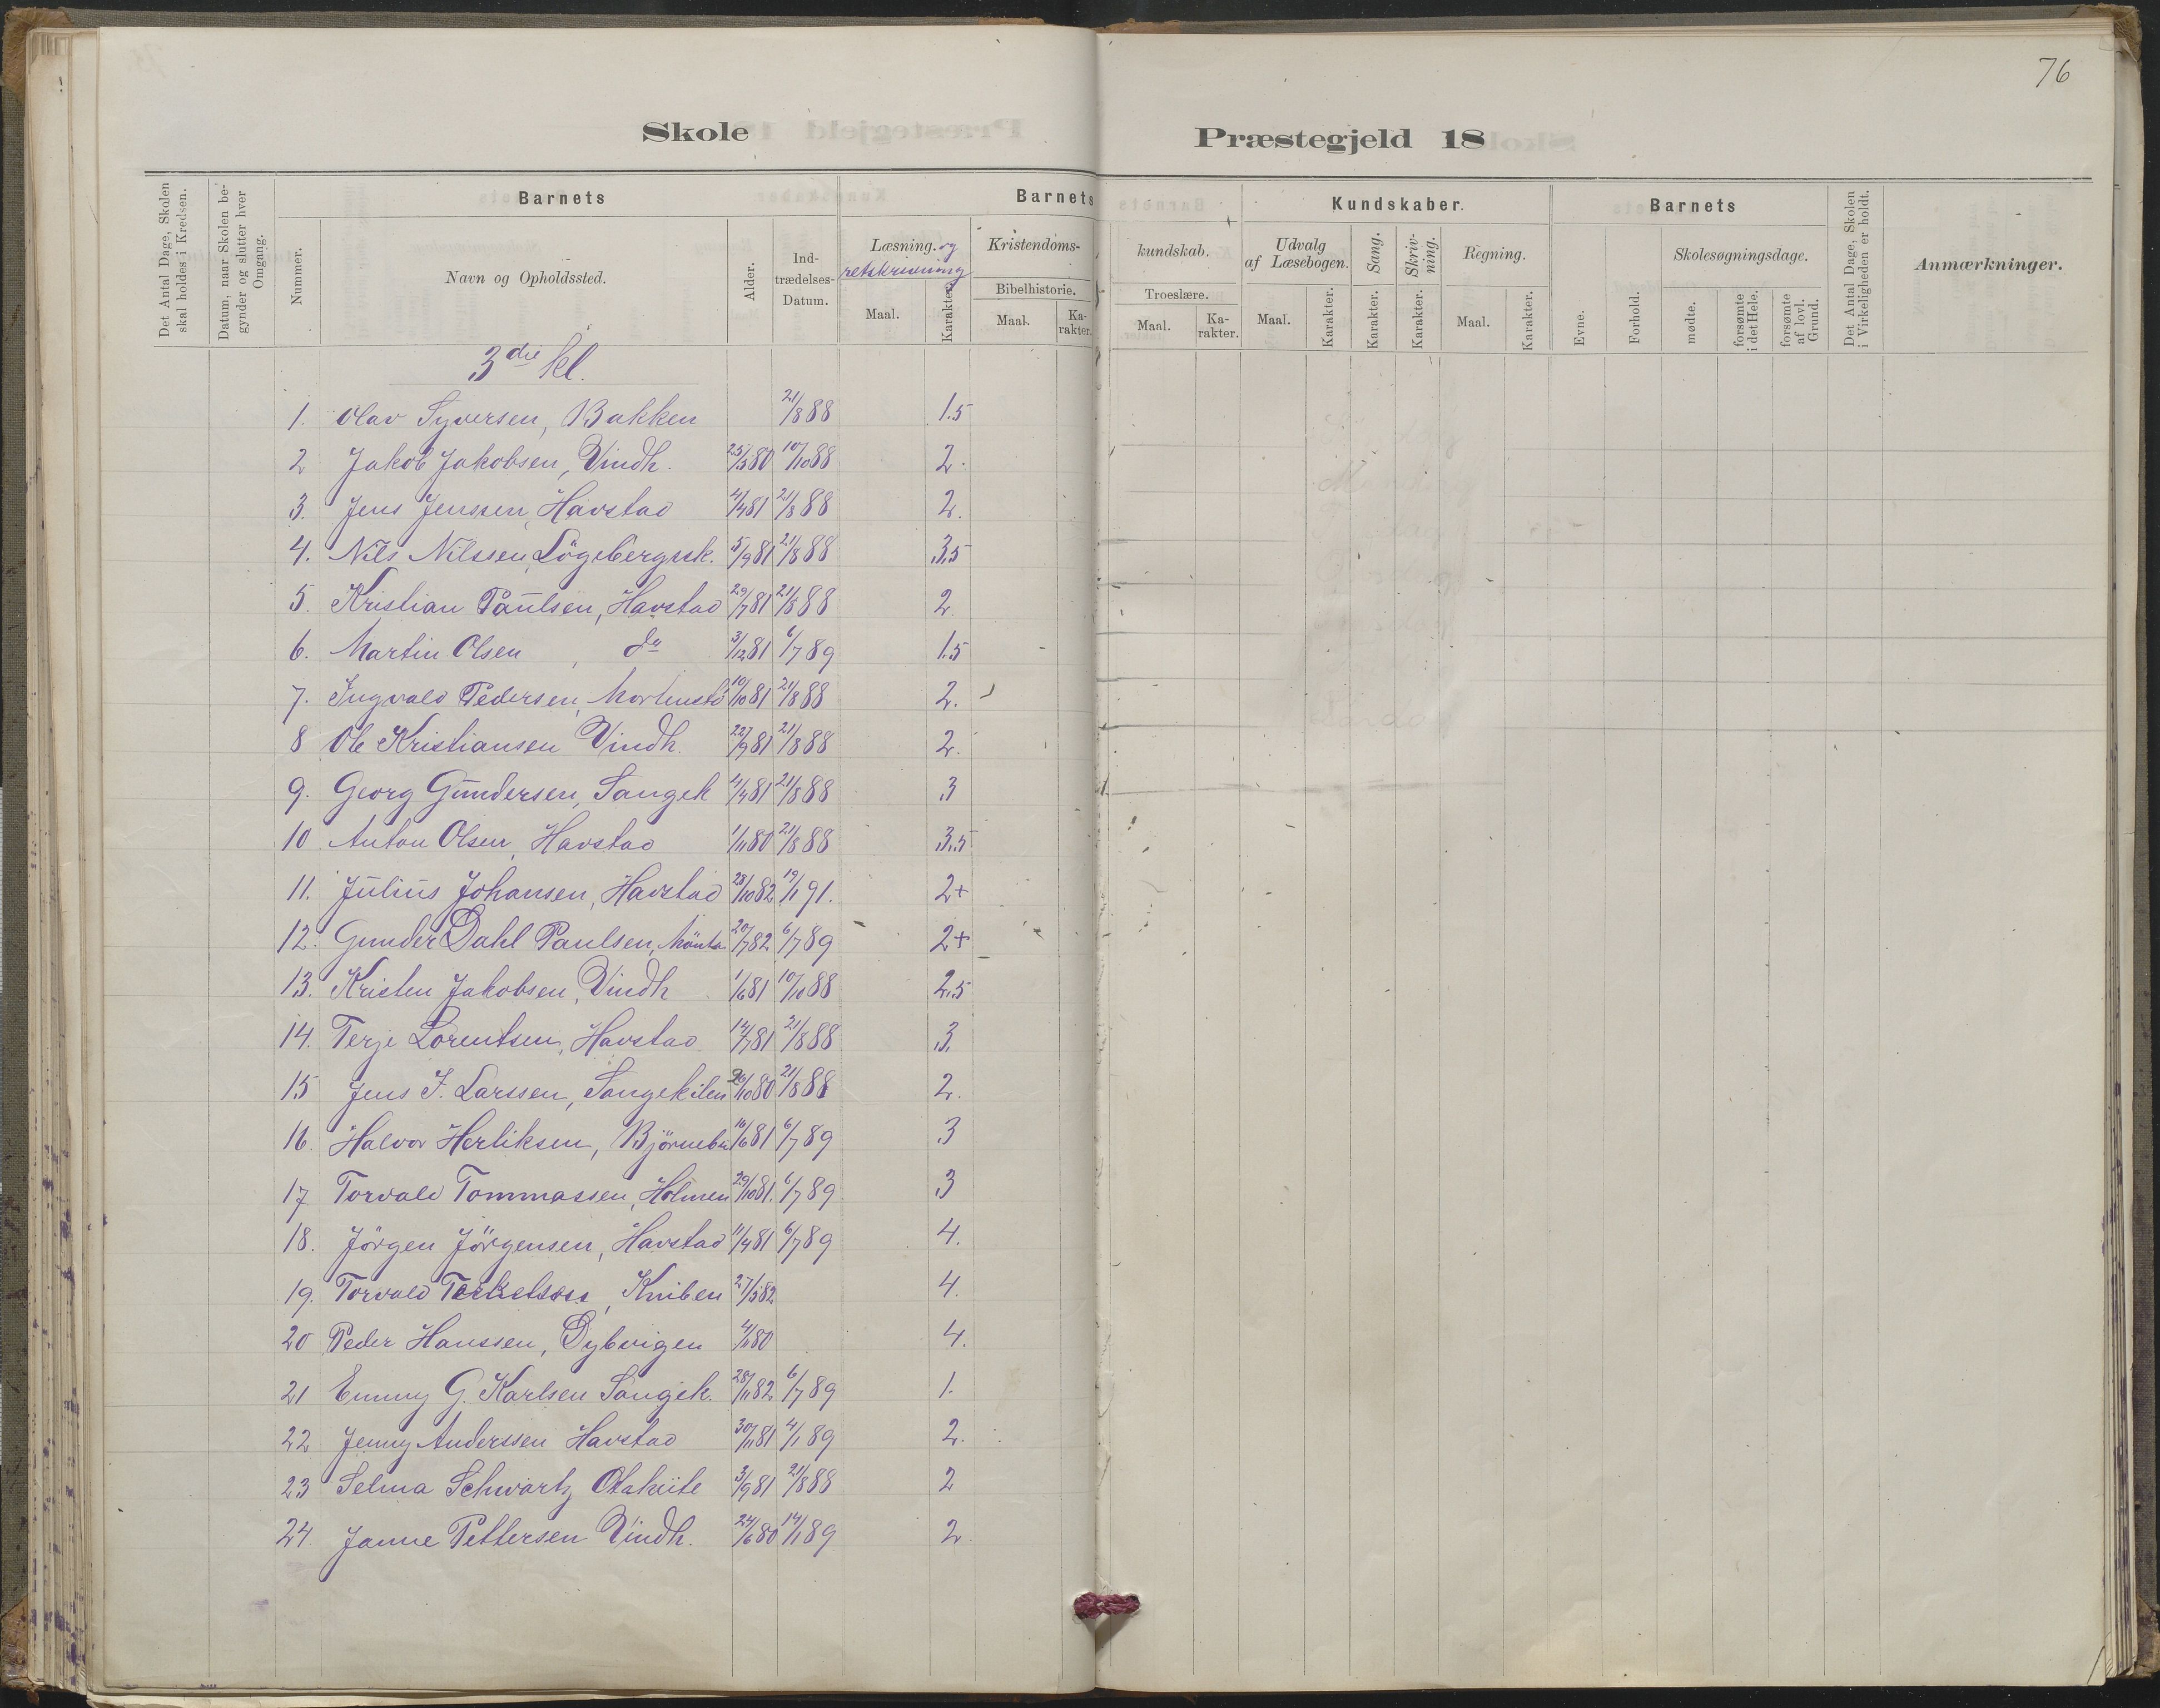 76
Skole
Præstegjeld 18
Det Antal Dage, Skolen skal holdes i Kredsen.
Datum, naar Skolen begynder og slutter hver Omgang.
Barnets
Nummer.
Navn og Opholdssted.
Alder.
Indtrædelses-Datum.
Barnets
Læsning. og retskrivning
Maal.
Karakter.
Kristendoms-
Bibelhistorie.
Maal.
Karakter.
kundskab.
Troeslære.
Maal.
Karakter.
Kundskaber.
Udvalg af Læsebogen.
Maal.
Karakter.
Sang.
Karakter.
Skrivning.
Karakter.
Regning.
Maal.
Karakter.
Barnets
Evne.
Forhold.
Skolesøgningsdage.
mødte.
forsømte i det Hele.
forsømte af lovl. Grund.
Det Antal Dage, Skolen i Virkeligheden er holdt.
Anmærkninger.
3die kl.
1. Olav Syversen, Bakken 21/8 88 1.5
2 Jakob Jakobsen, Vindh. 25/5 80 10/10 88 2.
3. Jens Jenssen, Havstad 4/4 81 21/8 88 2.
4. Nils Nilssen, Lögebergssk. 5/9 81 21/8 88 3.5
5. Kristian Paulsen, Havstad 29/7 81 21/8 88 2.
6. Martin Olsen, do 3/12 81 6/7 89 1.5
7. Ingvald Pedersen, 10/10 81 21/8 88 2.
8 Ole Kristiansen Vindh. 22/9 81 21/8 88 2.
9. Georg Gundersen, Sangek 4/4 81 21/8 88 3
10 Anton Olsen, Havstad 1/11 80 21/8 88 3.5
11. Julius Johansen, Havstad 28/10 82 19/1 91. 2+
12. Gunder Dahl Paulsen, 20/7 82 6/7 89 2+
13. Kristen Jakobsen, Vindh 1/6 81 10/10 88 2.5
14. Terje Lorentsen, Havstad 14/7 81 21/8 88 3.
15 Jens J. Larssen, Sangekilen 26/10 80 21/8 88 2.
16. Halvor Herliksen, Björnebu 16/6 81 6/7 89 3
17 Torvald Tommassen, Holmen 29/10 81. 6/7 89 3
18. Jörgen Jörgensen, Havstad 11/4 81 6/7 89 4.
19. Torvald Terkelsen, Kniben 27/5 82 4.
20 Peder Hanssen, Dybvigen 4/11 80 4.
21 Emmy G. Karlsen Sangek. 28/11 82 6/7 89 1.
22 Jenny Anderssen Havstad 30/11 81 4/1 89 2.
23 Selma Schwartz Otaheite 3/9 81 21/8 88 2
24. Janne Pettersen Vindh. 24/6 80 14/1 89 2.